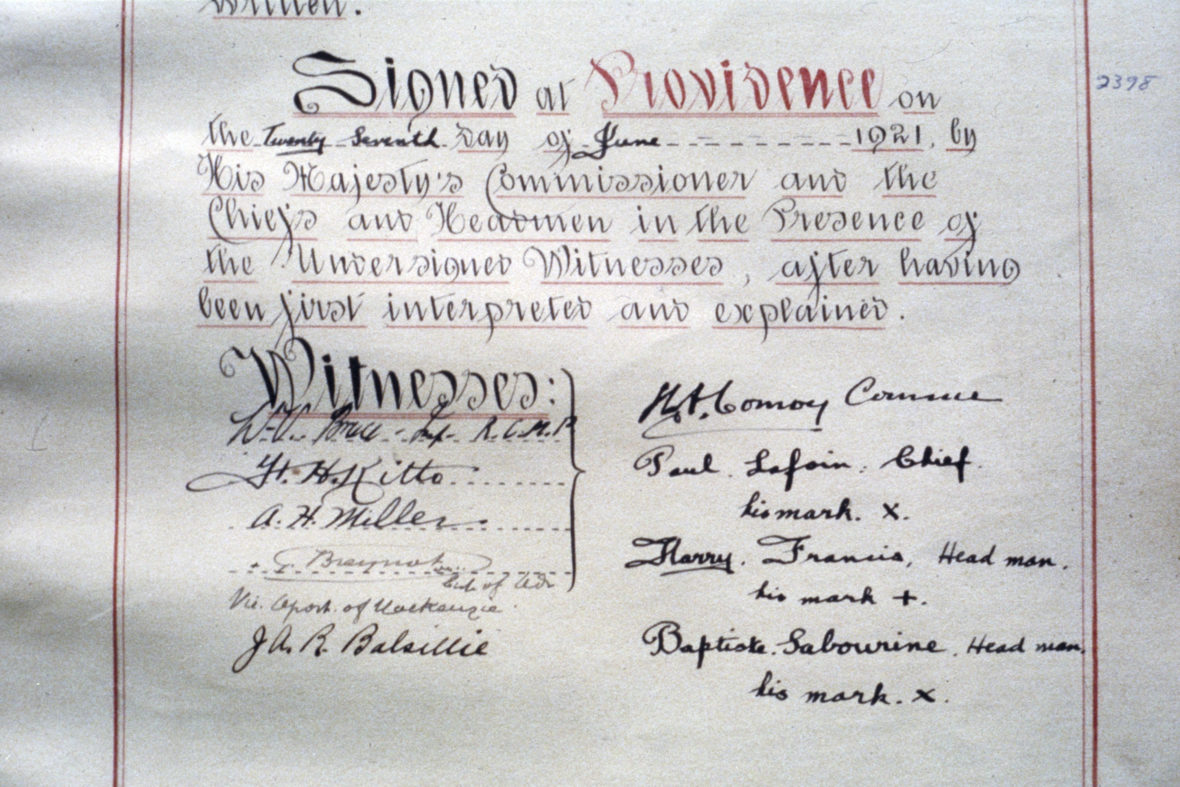 written.
Signed at Providence on
2398
the Twenty Seventh Day of June 1921, by
His Majesty's Commissioner and the
Chiefs and Headmen in the Presence of
the Undersigned Witnesses, after having
been first interpreted and explained.
Witnesses:
R.C.M.P
F. H. Kitto
A. H. Miller
G Breynat
Vic. Apost. of Mackenzie
J A. R. Balsillie
H.A. Conroy Comme
Paul. Lafoin. Chief.
his mark. x.
Harry. Francis, Head man.
his mark +.
Baptiste. Sabourine. Head man.
his mark. x.